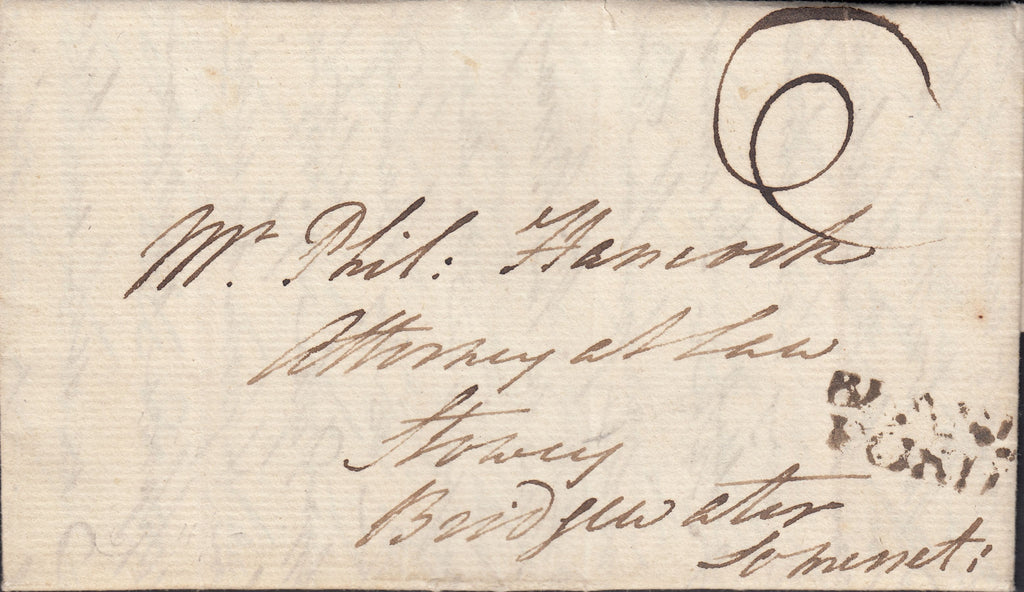 6
Mr. Phil: Hancock
Attorney at Law
Stowey
Bridgewater
Somerset:
BLAND
FORD